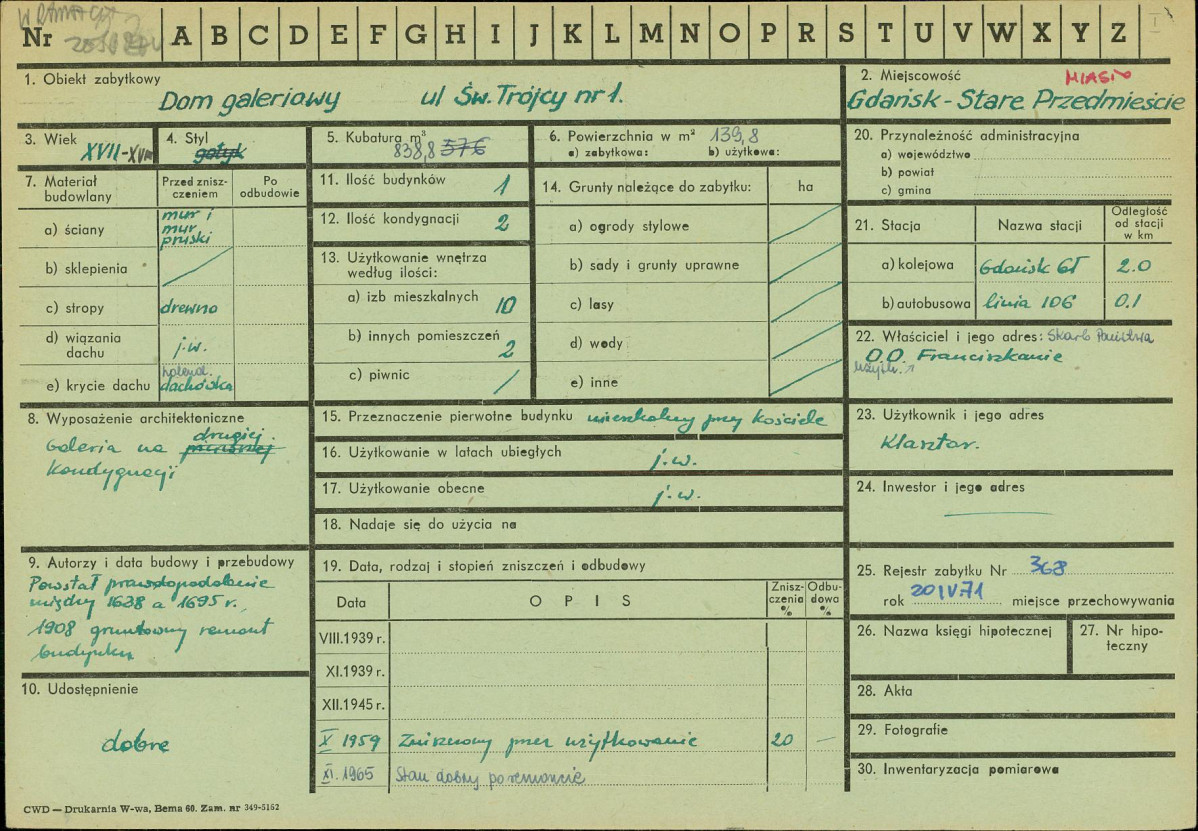 Nr A B C D E F G H I J K L M N O P R S T U V W X Y Z
1. Obiekt zabytkowy
Dom galeriowy ul Św. Trójcy nr 1.
2. Miejscowość MIASTO
Gdańsk - Stare Przedmieście
3. Wiek XVII-XVIII
4. Styl gotyk
5. Kubatura m³
838,8 576
6. Powierzchnia w m² 139,8
a) zabytkowa: b) użytkowa:
7. Materiał budowlany
Przed zniszczeniem
Po odbudowie
a) ściany mur i mur pruski
b) sklepienia
c) stropy drewno
d) wiązania dachu j.w.
e) krycie dachu holend. dachówka
8. Wyposażenie architektoniczne
Galeria na pierwszej drugiej
kondygnacji
9. Autorzy i data budowy i przebudowy
Powstał prawdopodobnie
między 1638 a 1695 r.,
1908 gruntowny remont
budynku
10. Udostępnienie
dobre
11. Ilość budynków 1
12. Ilość kondygnacji 2
13. Użytkowanie wnętrza
według ilości:
a) izb mieszkalnych 10
b) innych pomieszczeń 2
c) piwnic /
14. Grunty należące do zabytku: ha
a) ogrody stylowe
b) sady i grunty uprawne
c) lasy
d) wody
e) inne
15. Przeznaczenie pierwotne budynku mieszkalny przy kościele
16. Użytkowanie w latach ubiegłych j.w.
17. Użytkowanie obecne j.w.
18. Nadaje się do użycia na
19. Data, rodzaj i stopień zniszczeń i odbudowy
Data OPIS Zniszczenia % Odbudowa %
VIII.1939 r.
XI.1939 r.
XII.1945 r.
X 1959 Zniszczony przez użytkowanie 20 —
XI.1965 Stan dobry po remoncie
20. Przynależność administracyjna
a) województwo
b) powiat
c) gmina
21. Stacja Nazwa stacji Odległość od stacji w km
a) kolejowa Gdańsk Gł 2.0
b) autobusowa linia 106 0.1
22. Właściciel i jego adres: Skarb Państwa
O.O. Franciszkanie
użytk.
23. Użytkownik i jego adres
Klasztor.
24. Inwestor i jego adres
25. Rejestr zabytku Nr 368
rok 20 IV.71 miejsce przechowywania
26. Nazwa księgi hipotecznej
27. Nr hipoteczny
28. Akta
29. Fotografie
30. Inwentaryzacja pomiarowa
CWD — Drukarnia W-wa, Bema 60. Zam. nr 349-5162